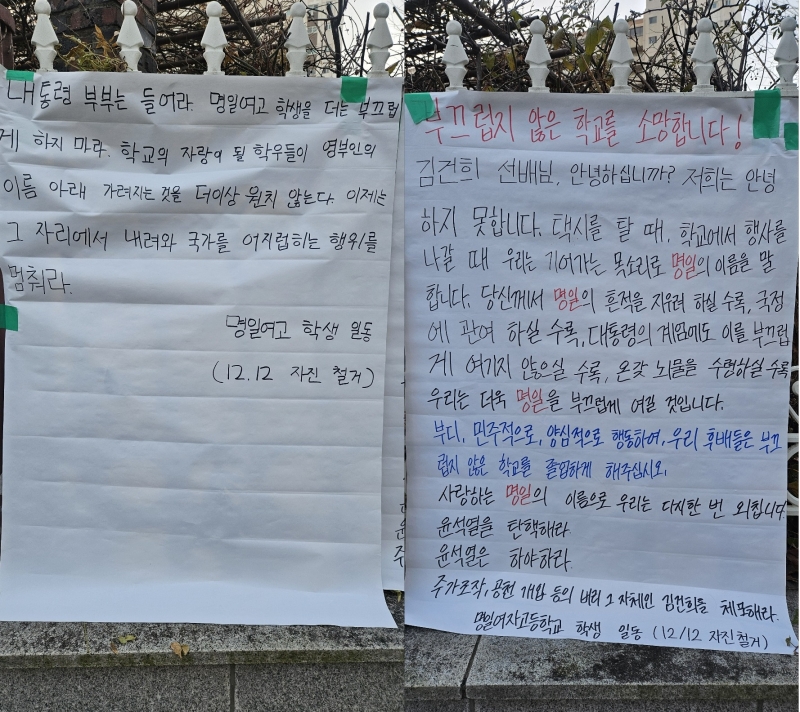 대통령 부부는 들어라. 명일여고 학생을 더는 부끄럽
게 하지 마라. 학교의 자랑이 될 학우들이 영부인의
이름 아래 가려지는 것을 더이상 원치 않는다. 이제는
그 자리에서 내려와 국가를 어지럽히는 행위를
멈춰라.
명일여고 학생 일동
(12.12 자진 철거)
부끄럽지 않은 학교를 소망합니다!
김건희 선배님, 안녕하십니까? 저희는 안녕
하지 못합니다. 택시를 탈 때, 학교에서 행사를
나갈 때 우리는 기어가는 목소리로 명일의 이름을 말
합니다. 당신께서 명일의 흔적을 지우려 하실 수록, 국정
에 관여 하실 수록, 대통령의 계엄에도 이를 부끄럽
게 여기지 않으실 수록, 온갖 뇌물을 수령하실 수록
우리는 더욱 명일을 부끄럽게 여길 것입니다.
부디, 민주적으로, 양심적으로 행동하여, 우리 후배들은 부끄
럽지 않은 학교를 졸업하게 해주십시오.
사랑하는 명일의 이름으로 우리는 다시한 번 외칩니다
윤석열을 탄핵해라
윤석열은 하야하라.
주가조작, 공천 개입 등의 비리 그 자체인 김건희를 체포해라.
명일여자고등학교 학생 일동 (12/12 자진철거)